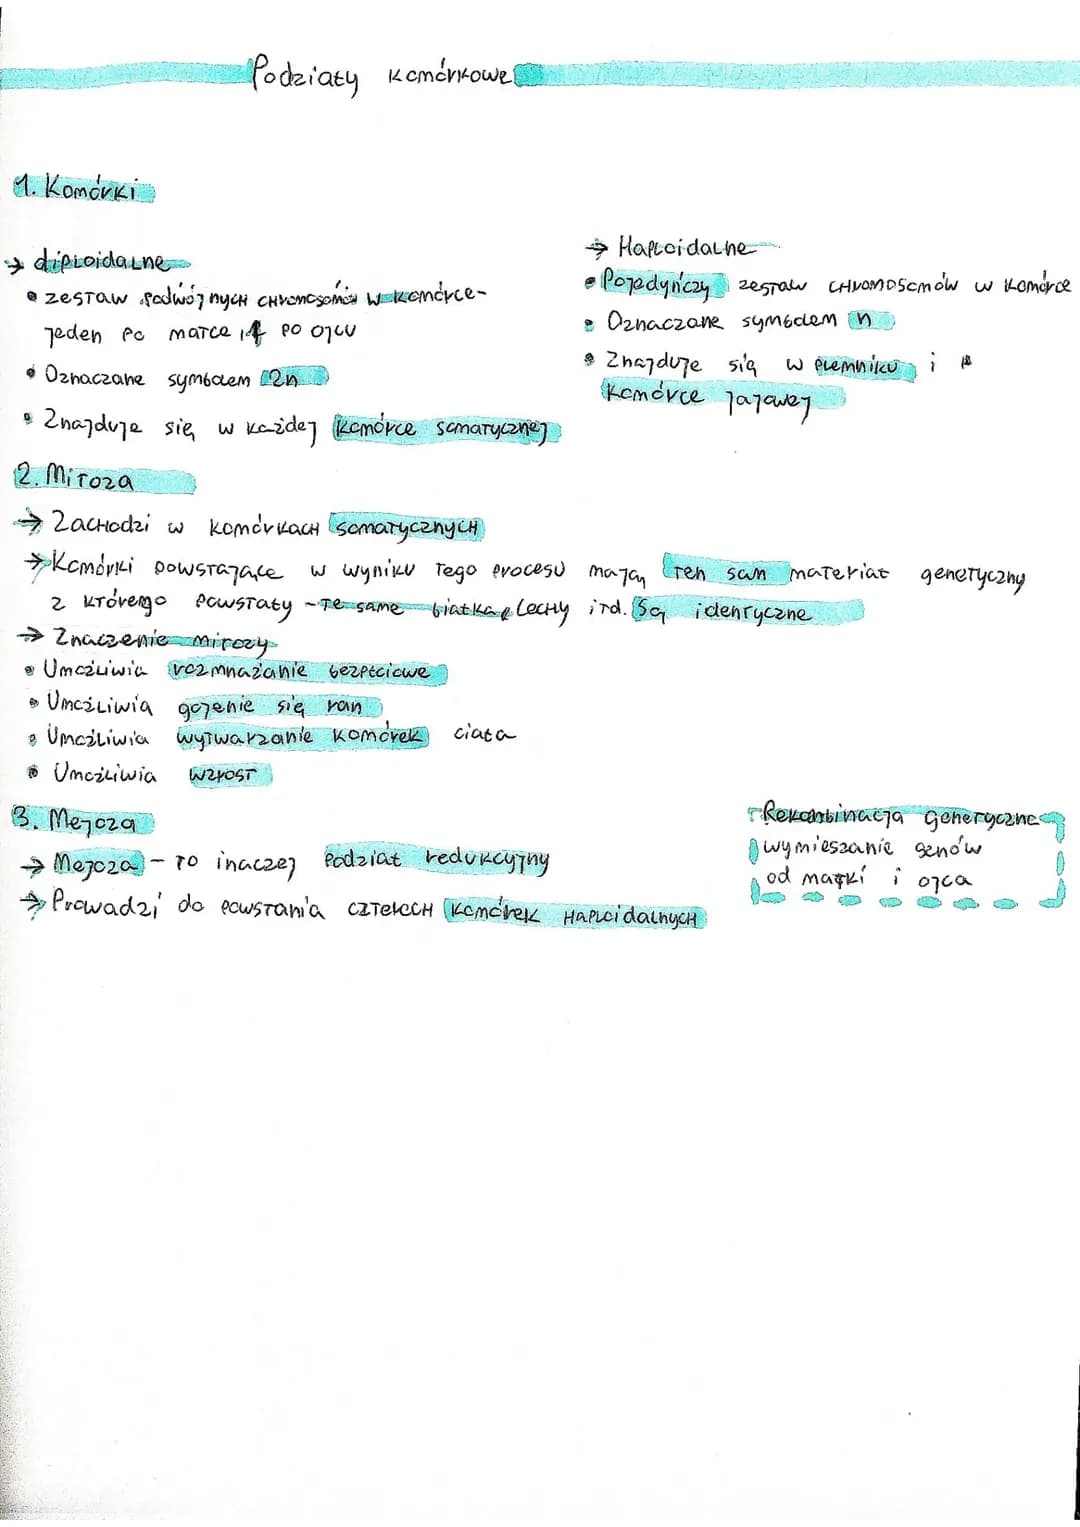 Podziały komórkowe
1. Komórki
→ diploidalne
• zestaw podwójnych chromosomów w komórce-
jeden po matce i po ojcu
• Oznaczane symbolem 2n
• Znajduje się w każdej komórce somatycznej
→ Haploidalne
• Pojedyńczy zestaw chromosomów w komórce
• Oznaczane symbolem n
• Znajduje się w plemniku i
komórce jajowej
2. Mitoza
→ Zachodzi w komórkach somatycznych
→ Komórki powstające w wyniku tego procesu mają ten sam materiał genetyczny
z którego powstały - Te same białka, cechy itd. Są identyczne
→ Znaczenie mitozy
• Umożliwia rozmnażanie bezpłciowe
• Umożliwia gojenie się ran
• Umożliwia wytwarzanie komórek ciała
• Umożliwia wzrost
3. Mejoza
→ Mejoza - to inaczej podział redukcyjny
→ Prowadzi do powstania czterech komórek haploidalnych
Rekombinacja genetyczne
wymieszanie genów
od matki i ojca